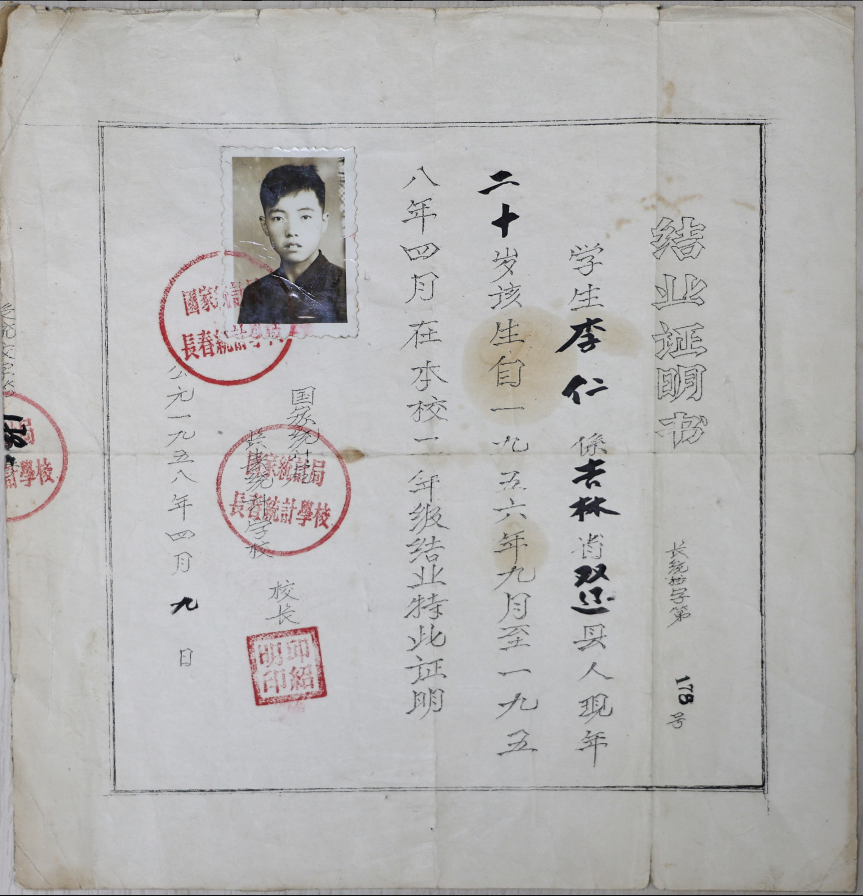 结业证明书
长统字第178号
学生李仁係吉林省双辽县人现年
二十岁该生自一九五六年九月至一九五
八年四月在本校一年级结业特此证明
国家统计局
长春统计学校 校长
國家統計局
長春統計學校
紹明印
公元一九五八年四月九日
國家統計
長春統計學校
局
計學校